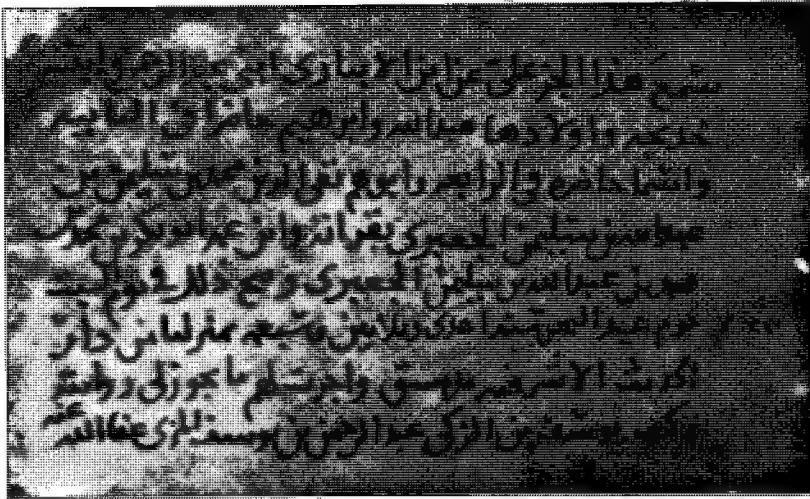 سمع هذا الجز علي ابني عبد الرحمن وابنته
خديجه واولادها عبدالله وابرهيم حاضرا في الثانيه
واسما حاضره في الرابعه وابوهم تقي الدين محمد بن سليمن بن
عبدالله بن سليمن الجعبري بقراته وابن عمه ابو بكر بن محمد بن
بن عبدالله بن سليمن الجعبري وصح ذلك في يوم السبت
سنه احدى وثلاثين وسبعمه بمنزلنا من دار
الحديث الاشرفيه بدمشق واجزت لهم ما يجوز لي روايته
وكتب يوسف بن الزكي عبدالرحمن بن يوسف المزي عفا الله عنه